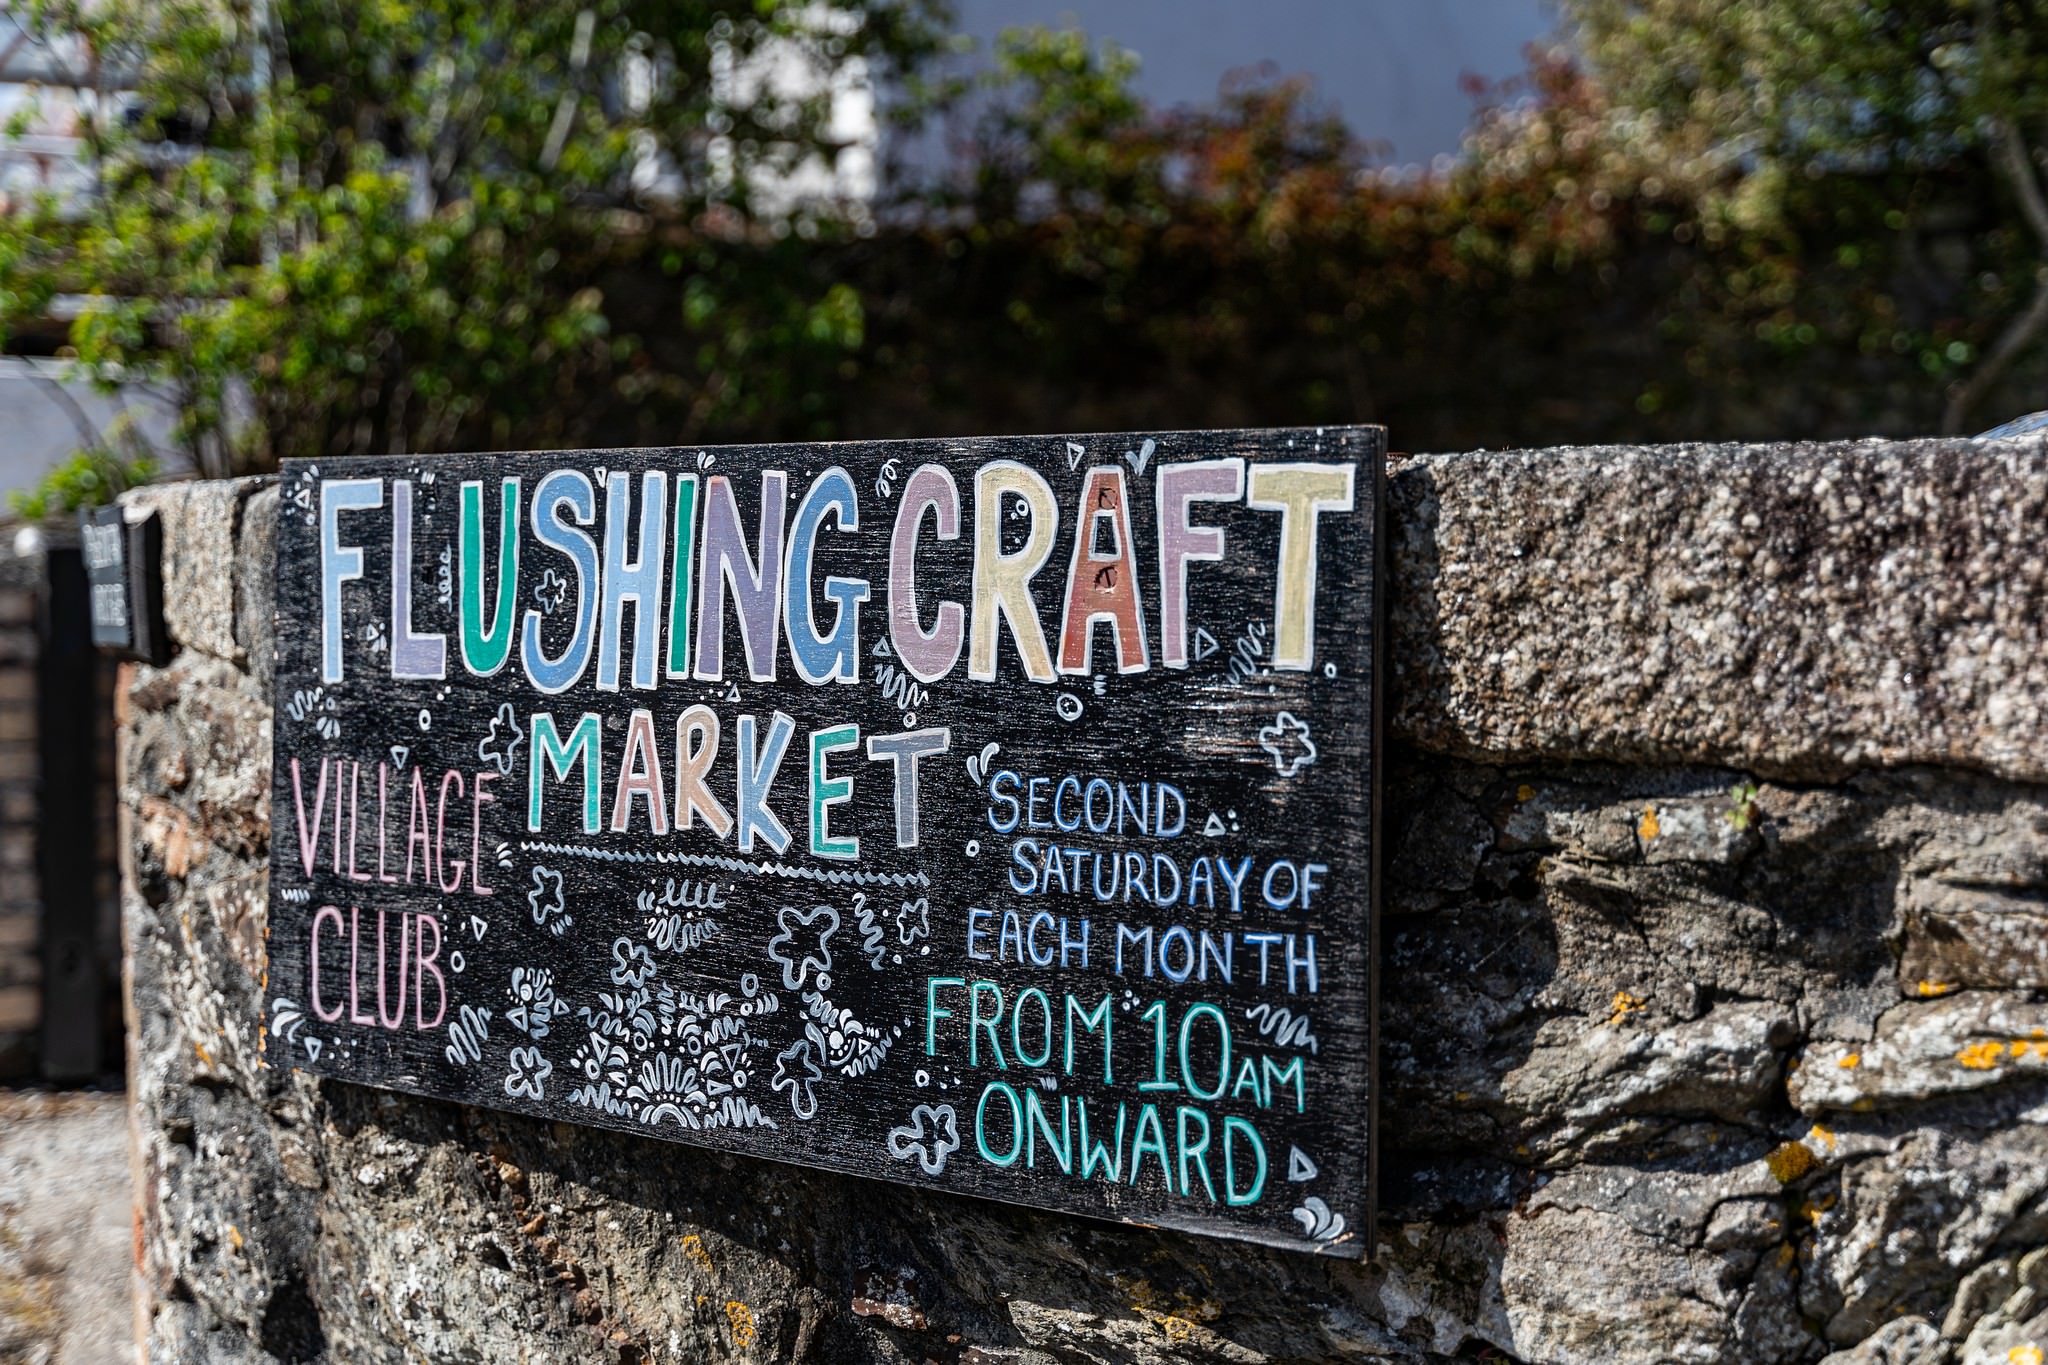 FLUSHING CRAFT
MARKET
VILLAGE
CLUB
SECOND
SATURDAY OF
EACH MONTH
FROM 10AM
ONWARD